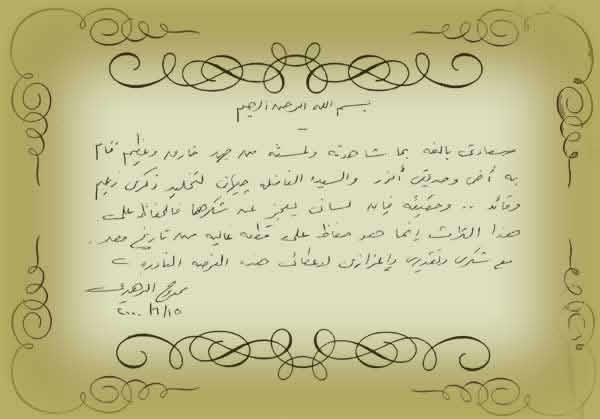 بسم الله الرحمن الرحيم
سعادتى بالغه بما شاهدته ولمسته من جهد خارق وعظيم قام
به أخى وصديقى أنور والسيده الفاضله جيهان لتخليد ذكرى زعيم
وقائد .. وحقيقه فإن لسانى يعجز عن شكرها فالحفاظ على
هذا التراث إنما هو حفاظ على قطعه غاليه من تاريخ مصر .
مع شكرى وتقديرى وإعزازى لإعطائى هذه الفرصه النادره